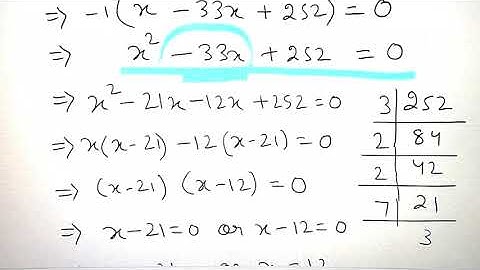 ⇒ -1(x - 33x + 252) = 0
x² - 33x + 252 = 0
⇒ x² - 21x - 12x + 252 = 0
⇒ x(x-21) - 12(x-21) = 0
⇒ (x-21) (x-12) = 0
⇒ x-21=0 or x-12=0
3 | 252
2 | 84
2 | 42
7 | 21
3